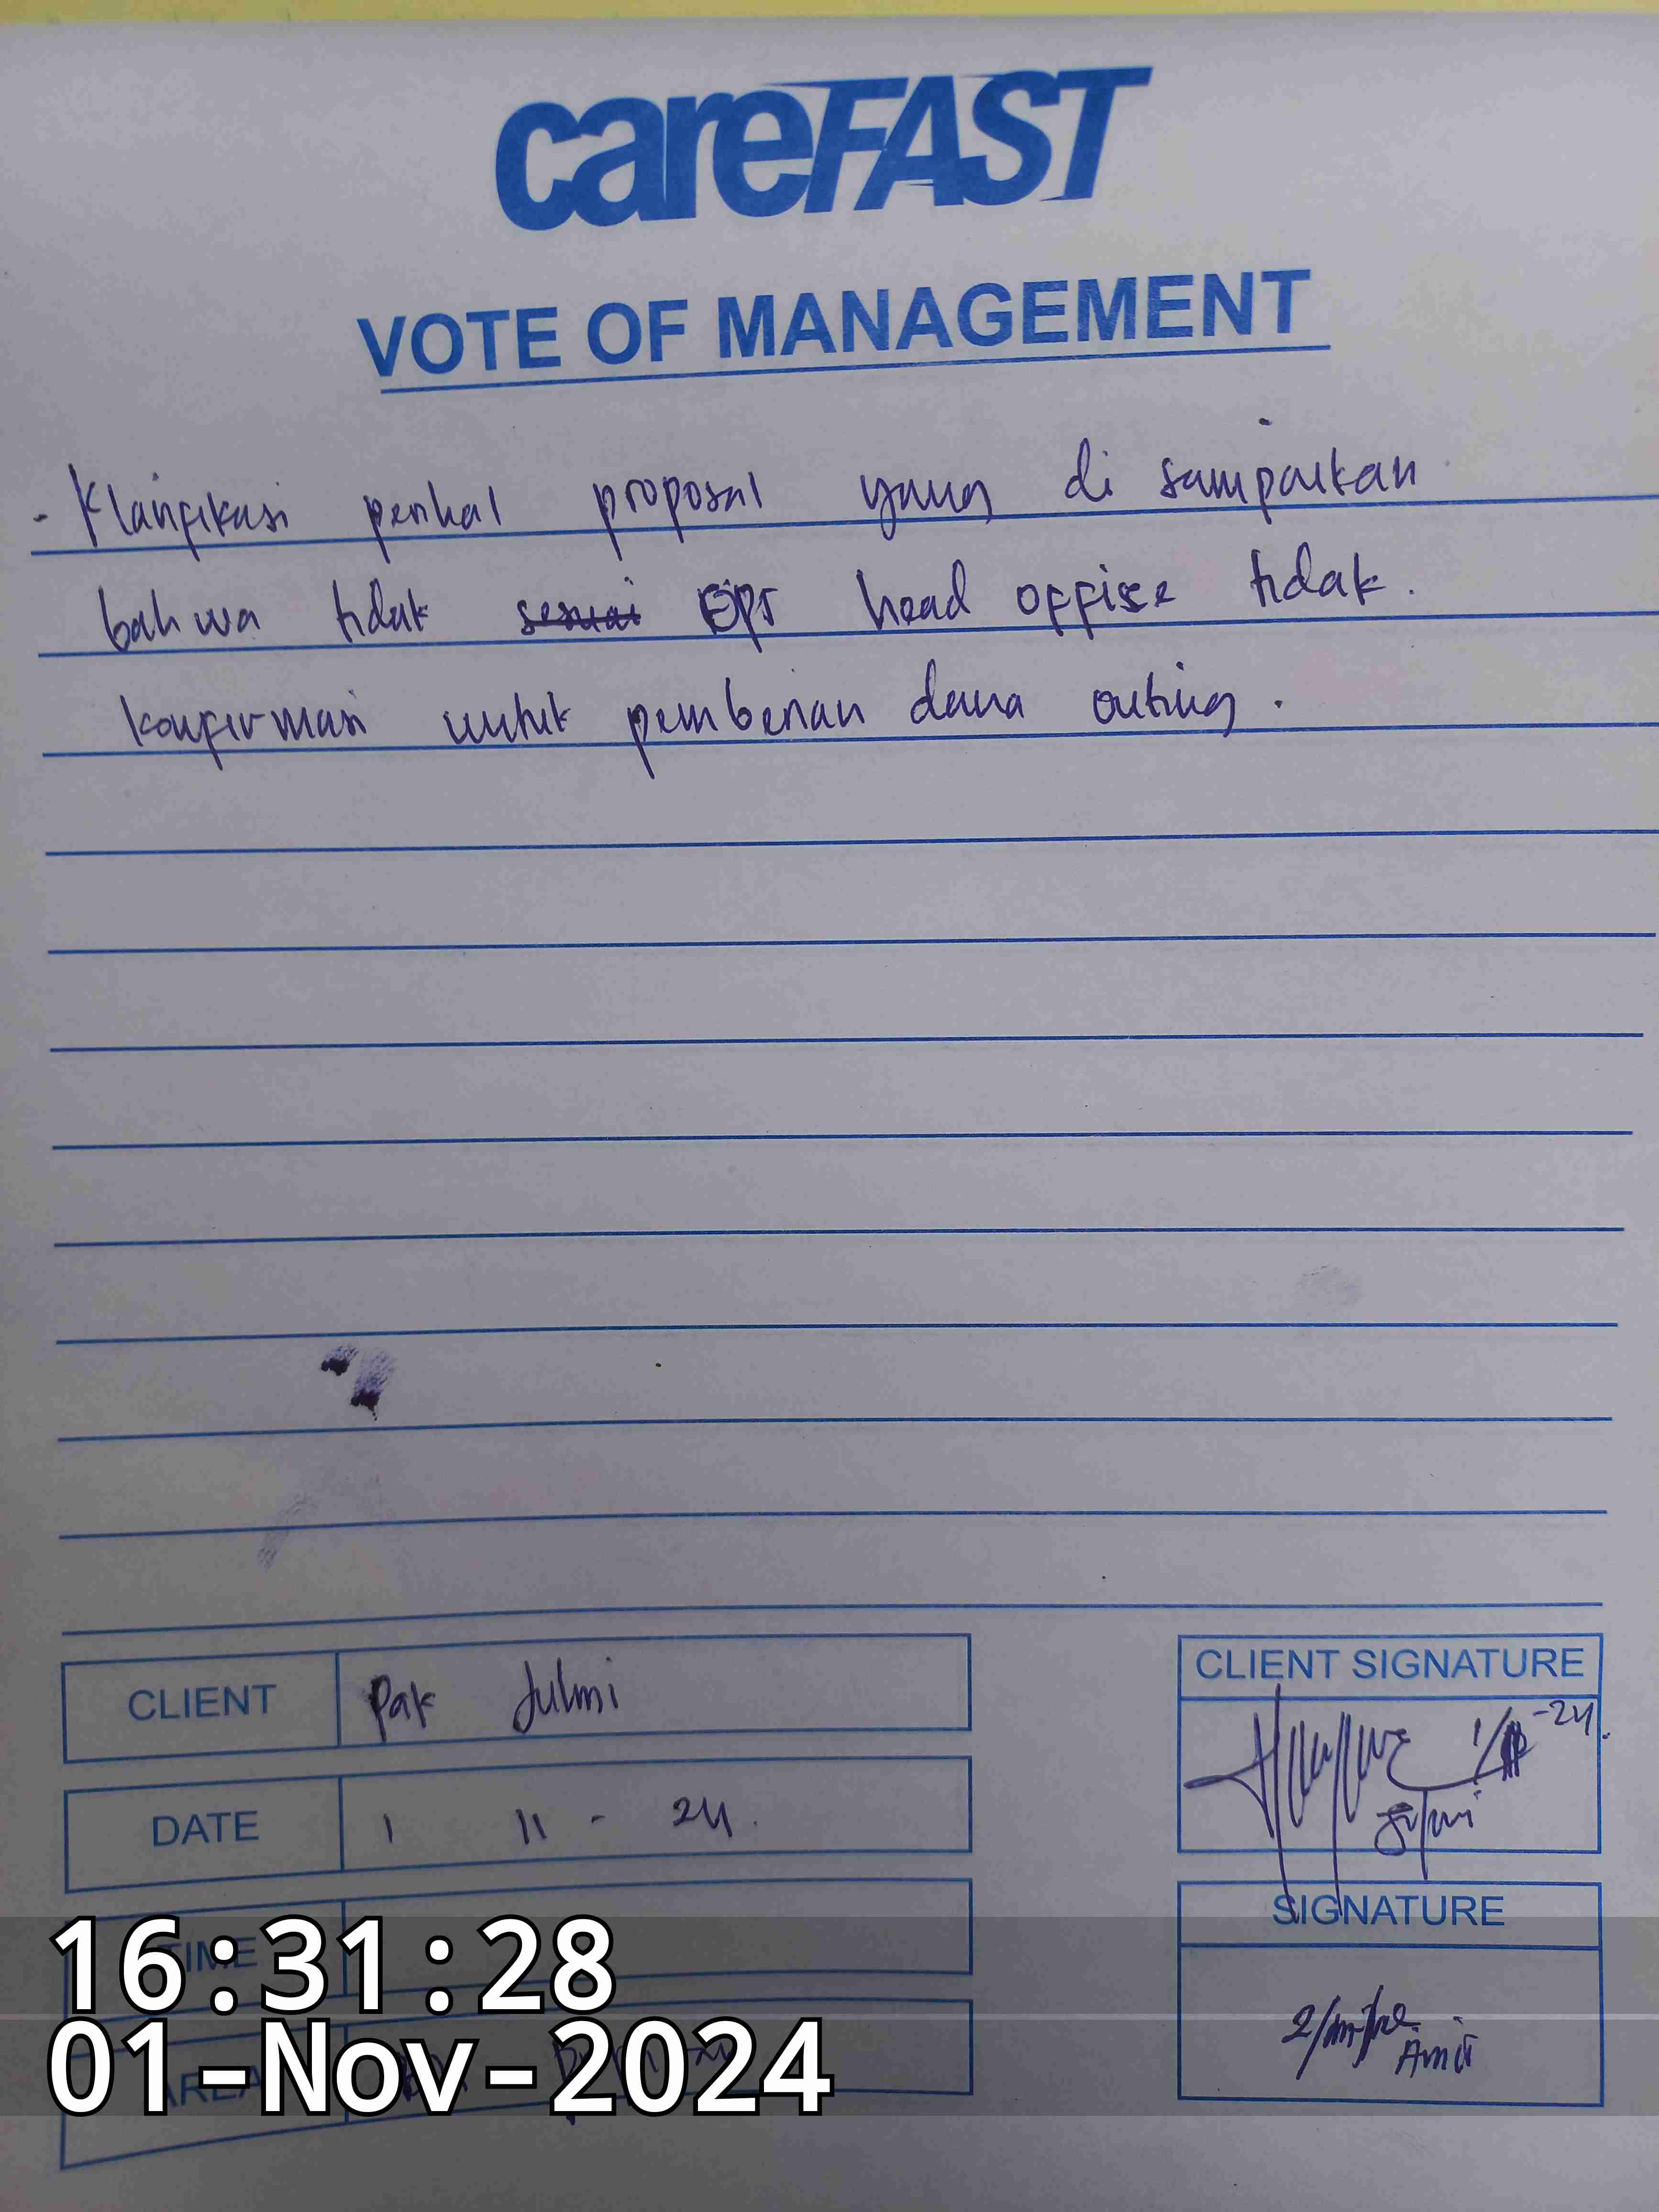 careFAST
VOTE OF MANAGEMENT
- Klarifikasi perihal proposal yang di sampaikan
bahwa tidak sesuai OPS head offise tidak.
konfirmasi untuk pemberian dana outing.
CLIENT Pak Julmi
DATE 1 11 - 24.
TIME
AREA
CLIENT SIGNATURE
-24.
SIGNATURE
16:31:28
01-Nov-2024